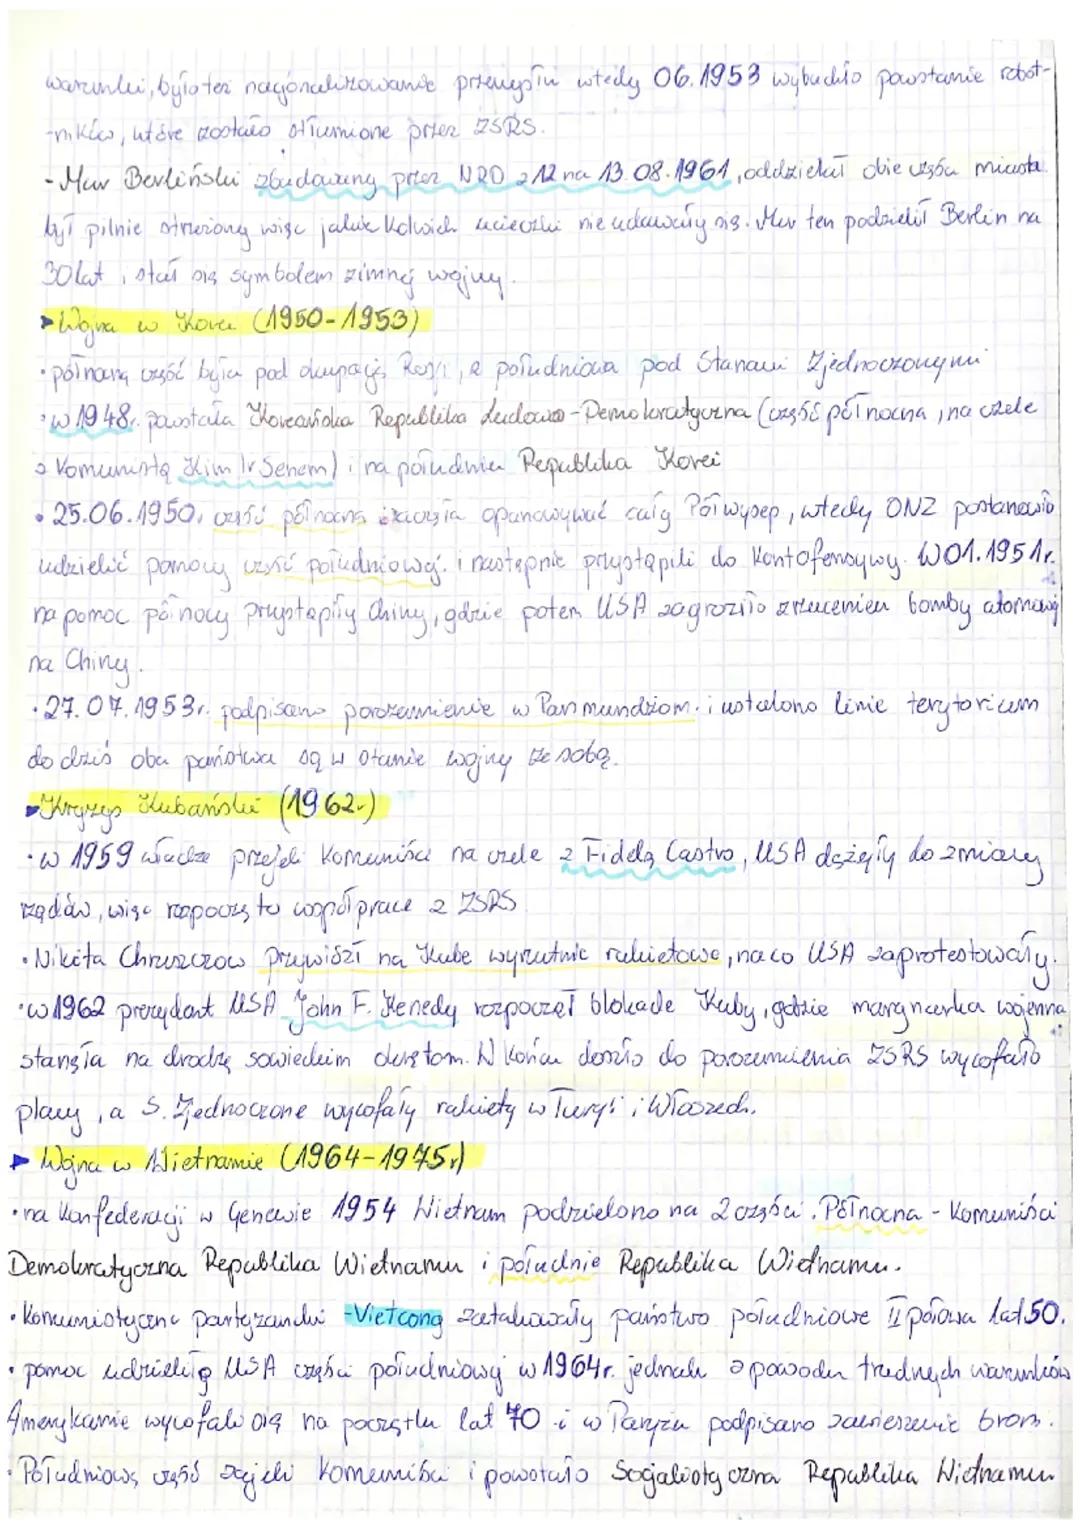 warunki, było też nacjonalizowanie przemysłu wtedy 06.1953 wybuchło powstanie robot-
-ników, które zostało stłumione przez ZSRS.
- Mur Berliński zbudowany przez NRD z 12 na 13.08.1961, oddzielał obie części miasta
był pilnie strzeżony więc jakie kolwiek ucieczki nie udawały się. Mur ten podzielił Berlin na
30 lat, stał się symbolem zimnej wojny.
➤ Wojna w Korei (1950-1953)
• północną część była pod okupacją Rosji, a południowa pod Stanami Zjednoczonymi
• w 1948r. powstała Koreańska Republika Ludowo-Demokratyczna (część północna, na czele
z Komunistą Kim Ir Senem) i na południu Republika Korei
• 25.06.1950r. część północna zaczęła opanowywać cały Półwysep, wtedy ONZ postanowiło
udzielić pomocy część południowej. i następnie przystąpili do kontofensywy. W 01.1951r.
na pomoc północy przystąpiły Chiny, gdzie potem USA zagroziło zrzuceniem bomby atomowej
na Chiny.
• 27.07.1953r. podpisano porozumienie w Panmundżom. i ustalono linie terytorium
do dziś oba państwa są w stanie wojny ze sobą.
➤ Kryzys Kubański (1962r)
• w 1959 władze przejęli komuniści na czele z Fidelą Castro, USA dążyły do zmiany
rządów, więc rozpoczęto współprace z ZSRS
• Nikita Chruszczow przywiózł na Kube wyrzutnie rakietowe, na co USA zaprotestowały.
• w 1962 prezydent USA John F. Kenedy rozpoczął blokade Kuby, gdzie marynarka wojenna
stanęła na drodze sowieckim okrętom. W końcu doszło do porozumienia ZSRS wycofało
plany, a S. Zjednoczone wycofały rakiety w Turcji i Włoszech.
➤ Wojna w Wietnamie (1964-1975r)
• na konfederacji w Genewie 1954 Wietnam podzielono na 2 części. Północna - Komuniści
Demokratyczna Republika Wietnamu i południe Republika Wietnamu.
• Komunistyczne partyzandki - Vietcong zatakowały państwo południowe II połowa lat 50.
• pomoc udzieliło USA części południowej w 1964r. jednak z powodu trudnych warunków
Amerykanie wycofali się na początku lat 70 i w Paryżu podpisano zawieszenie broni.
• Południową część zajęli komuniści i powstało Socjalistyczna Republika Wietnamu